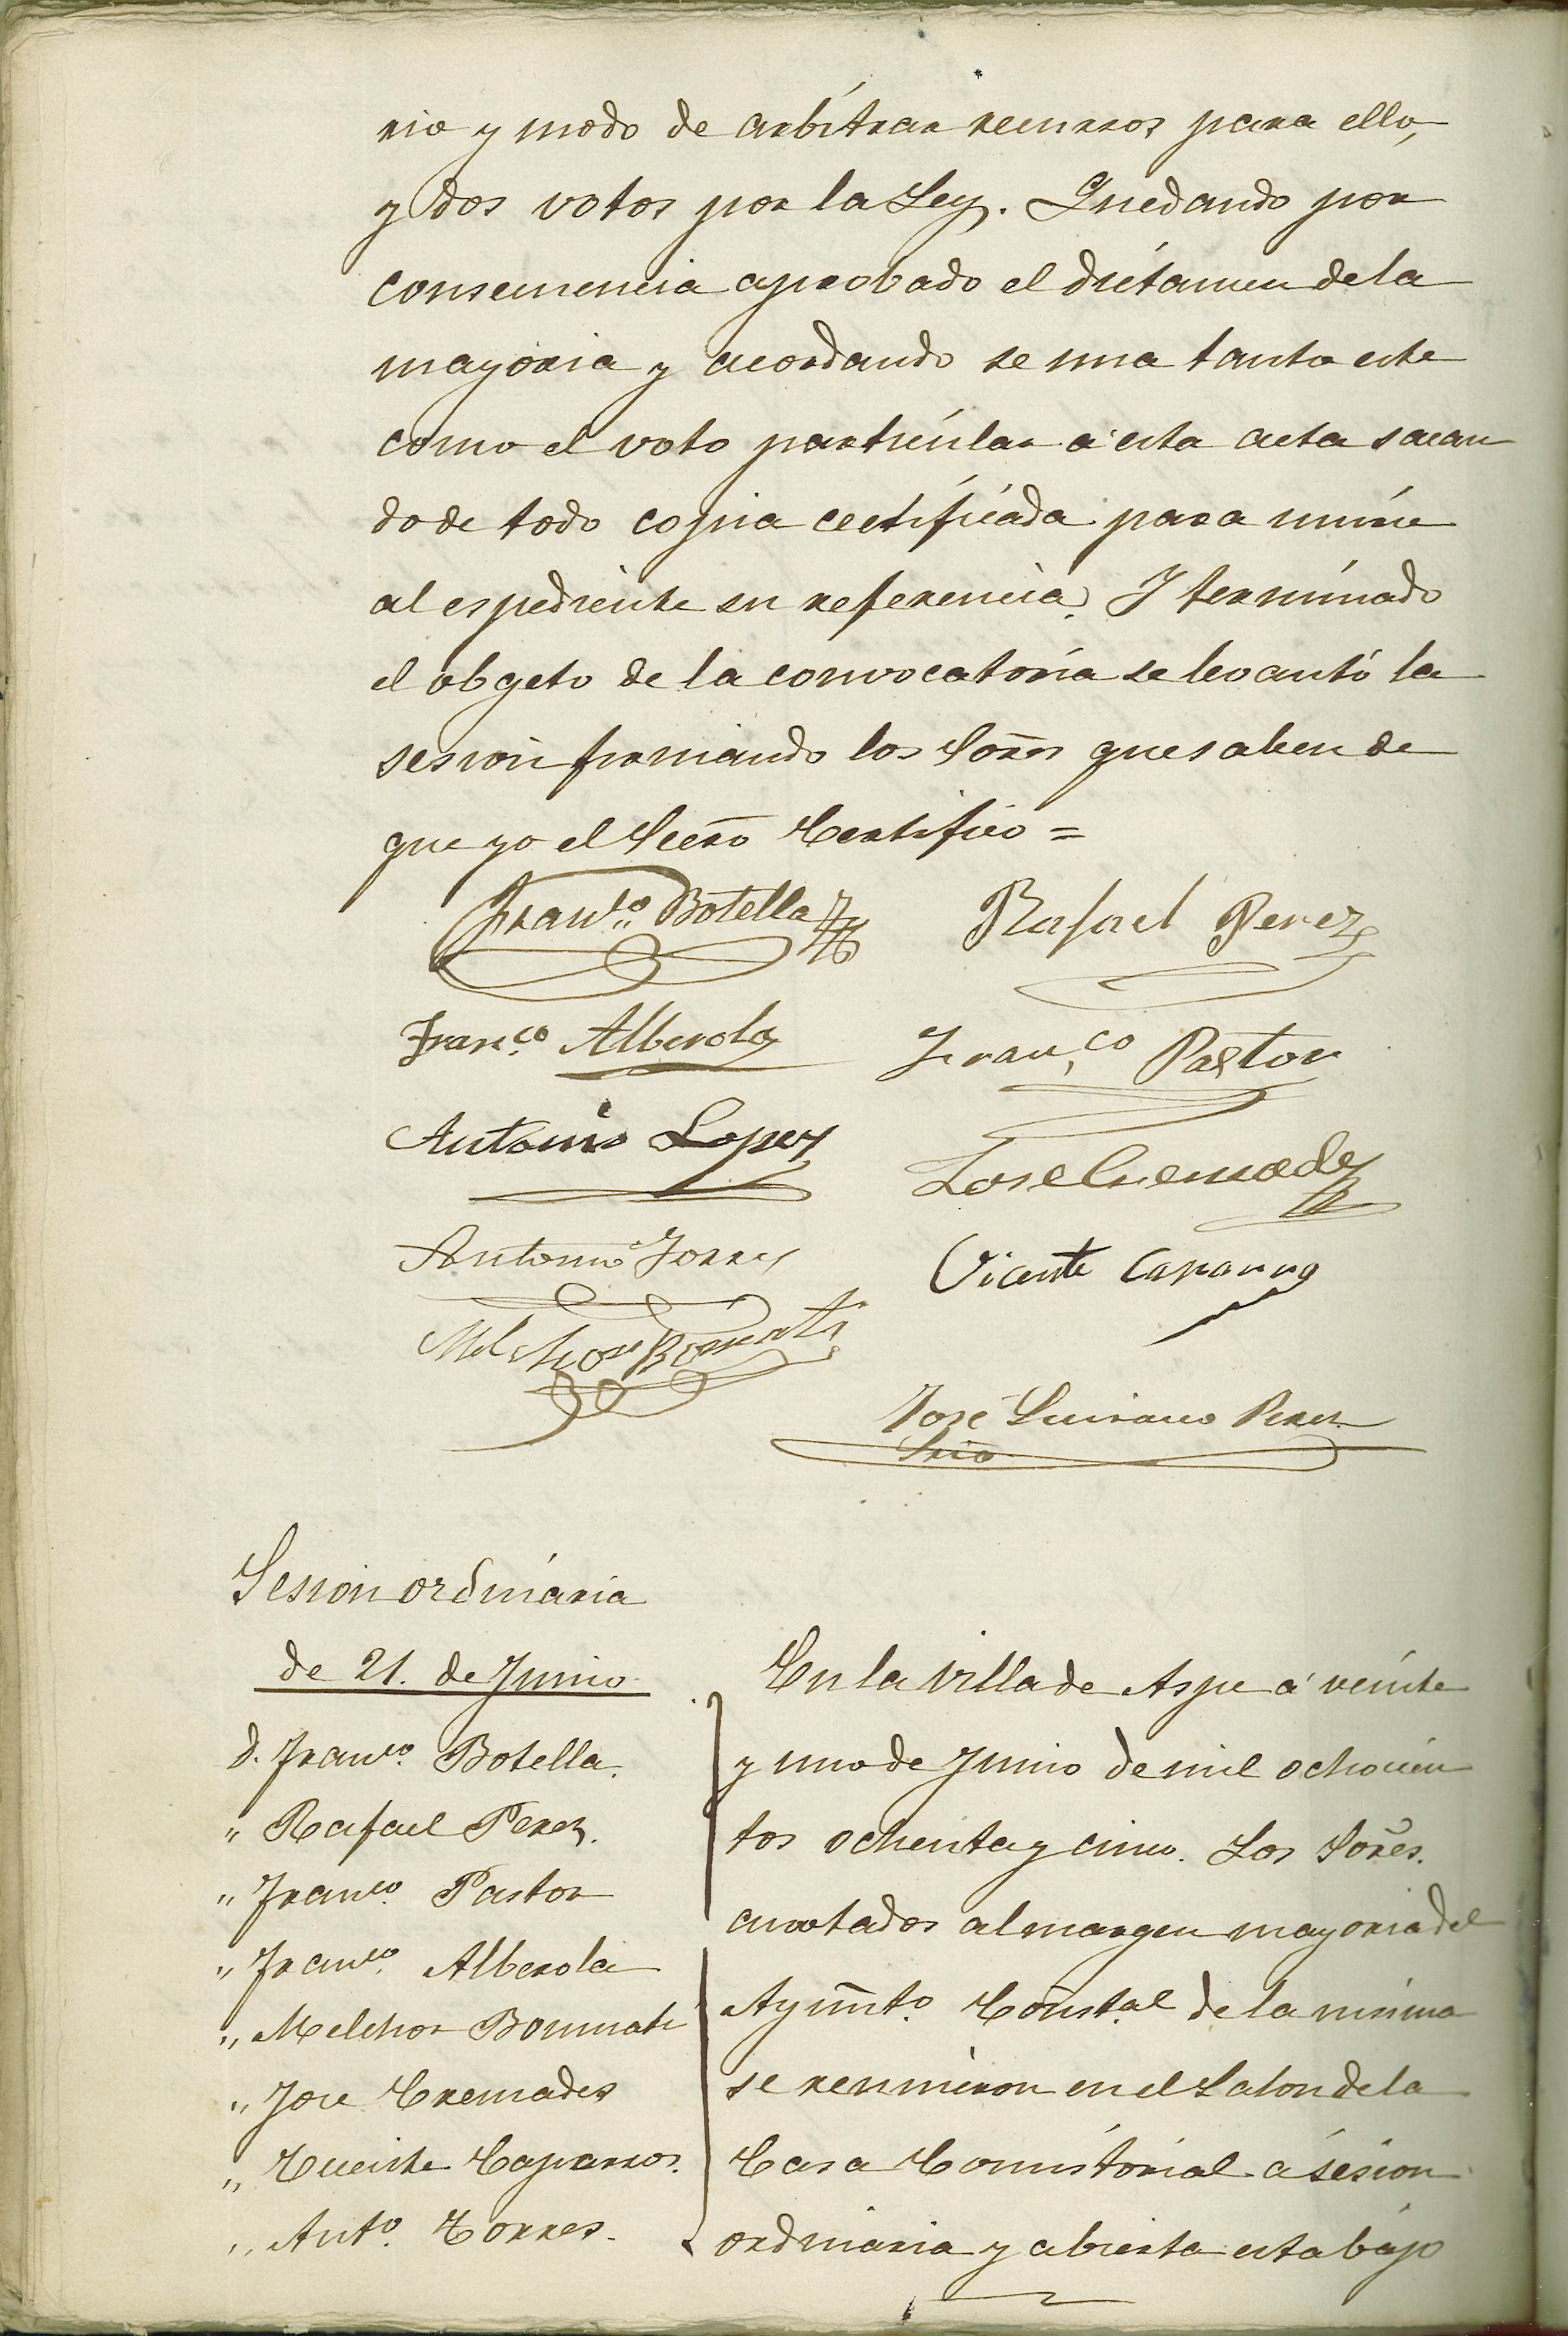 rio y modo de arbitrar recursos para ello,
y dos votos por la Ley. Quedando por
consecuencia aprobado el dictamen de la
mayoria y acordando se una tanto este
como el voto particular á esta acta sacan
do de todo copia certificada para unirse
al espediente su referencia. Y terminado
el obgeto de la convocatoria se levantó la
sesion firmando los Sores que saben de
que yo el Secro Certifico =
Franco Botella Rafael Perez
Franco Alberola Franco Pastor
Antonio Lopez Jose Cremades
Antonio Torres Vicente Caparros
Melchor Bonmati
José Luciano Perez
Srio
Sesion ordinaria
de 21. de Junio
D. Franco Botella.
" Rafael Perez.
" Franco Pastor
" Franco Alberola
" Melchor Bonmati
" Jose Cremades
" Vicente Caparros.
" Anto Torres.
En la Villa de Aspe á veinte
y uno de Junio de mil ochocien
tos ochenta y cinco. Los Sores.
anotados al margen mayoria del
Ayunto Constal de la misma
se reunieron en el Salon de la
Casa Comistorial á sesion
ordinaria y abierta esta bajo